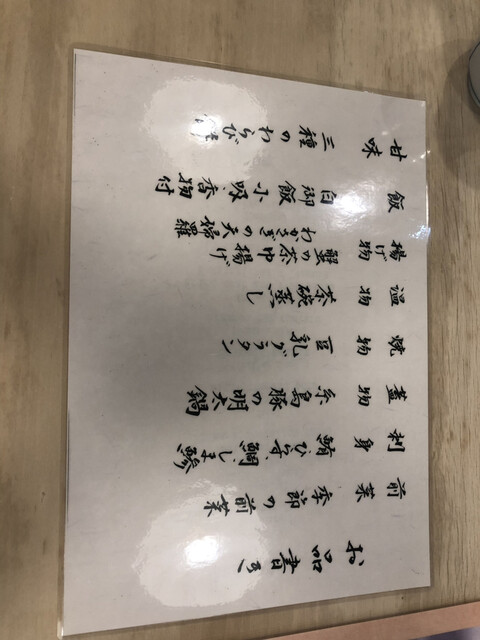 お品書き
前菜
季節の前菜
刺身
鮪、ひらす、鯛、しま鯵
蓋物
糸島豚の明太鍋
焼物
豆乳グラタン
温物
茶碗蒸し
揚げ物
蟹の茶巾揚げ
わかさぎの天婦羅
飯
白御飯、小吸、香物付
甘味
三種のわらび